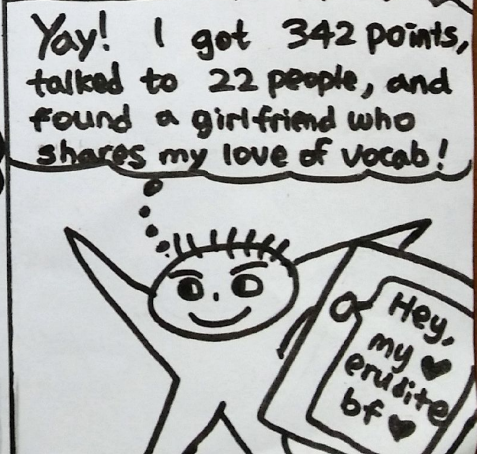 Yay! I got 342 points,
talked to 22 people, and
found a girlfriend who
shares my love of vocab!
Hey,
my ♥
erudite
bf ♥